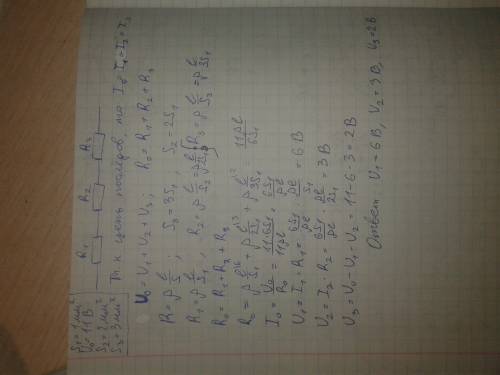 S₁ = 1 мм²
U₀ = 11 В
S₂ = 2 мм²
S₃ = 3 мм²
R₁ R₂ R₃
Т к цепь послед., то I₀ = I₁ = I₂ = I₃
U₀ = U₁ + U₂ + U₃ ; R₀ = R₁ + R₂ + R₃
R = ρ l/S ; S₃ = 3S₁ , S₂ = 2S₁
R₁ = ρ l/S₁ ; R₂ = ρ l/S₂ = ρ l/2S₁ ; R₃ = ρ l/S₃ = ρ l/3S₁
R₀ = R₁ + R₂ + R₃
R₀ = ρ l/S₁ + ρ l/2S₁ + ρ l/3S₁ = 11ρl/6S₁
I₀ = U₀/R₀ = 11·6S₁/11ρl = 6S₁/ρl
U₁ = I₁ · R₁ = 6S₁/ρl · ρl/S₁ = 6 В
U₂ = I₂ · R₂ = 6S₁/ρl · ρl/2S₁ = 3 В
U₃ = U₀ - U₁ - U₂ = 11 - 6 - 3 = 2 В
Ответ U₁ = 6 В, U₂ = 3 В, U₃ = 2 В